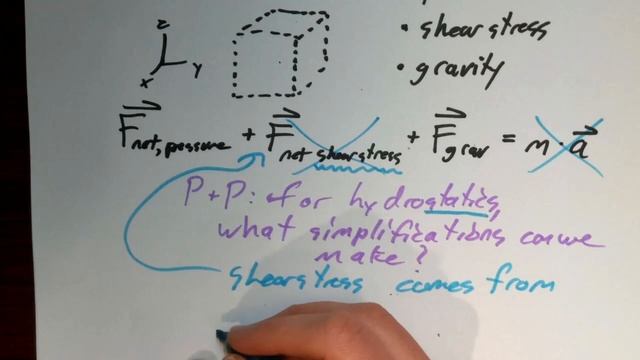 • shear stress
• gravity
z
x y
F not, pressure + F not shear stress + F grav = m · a
P+P: for hydrostatics,
what simplifications can we
make?
shear stress comes from